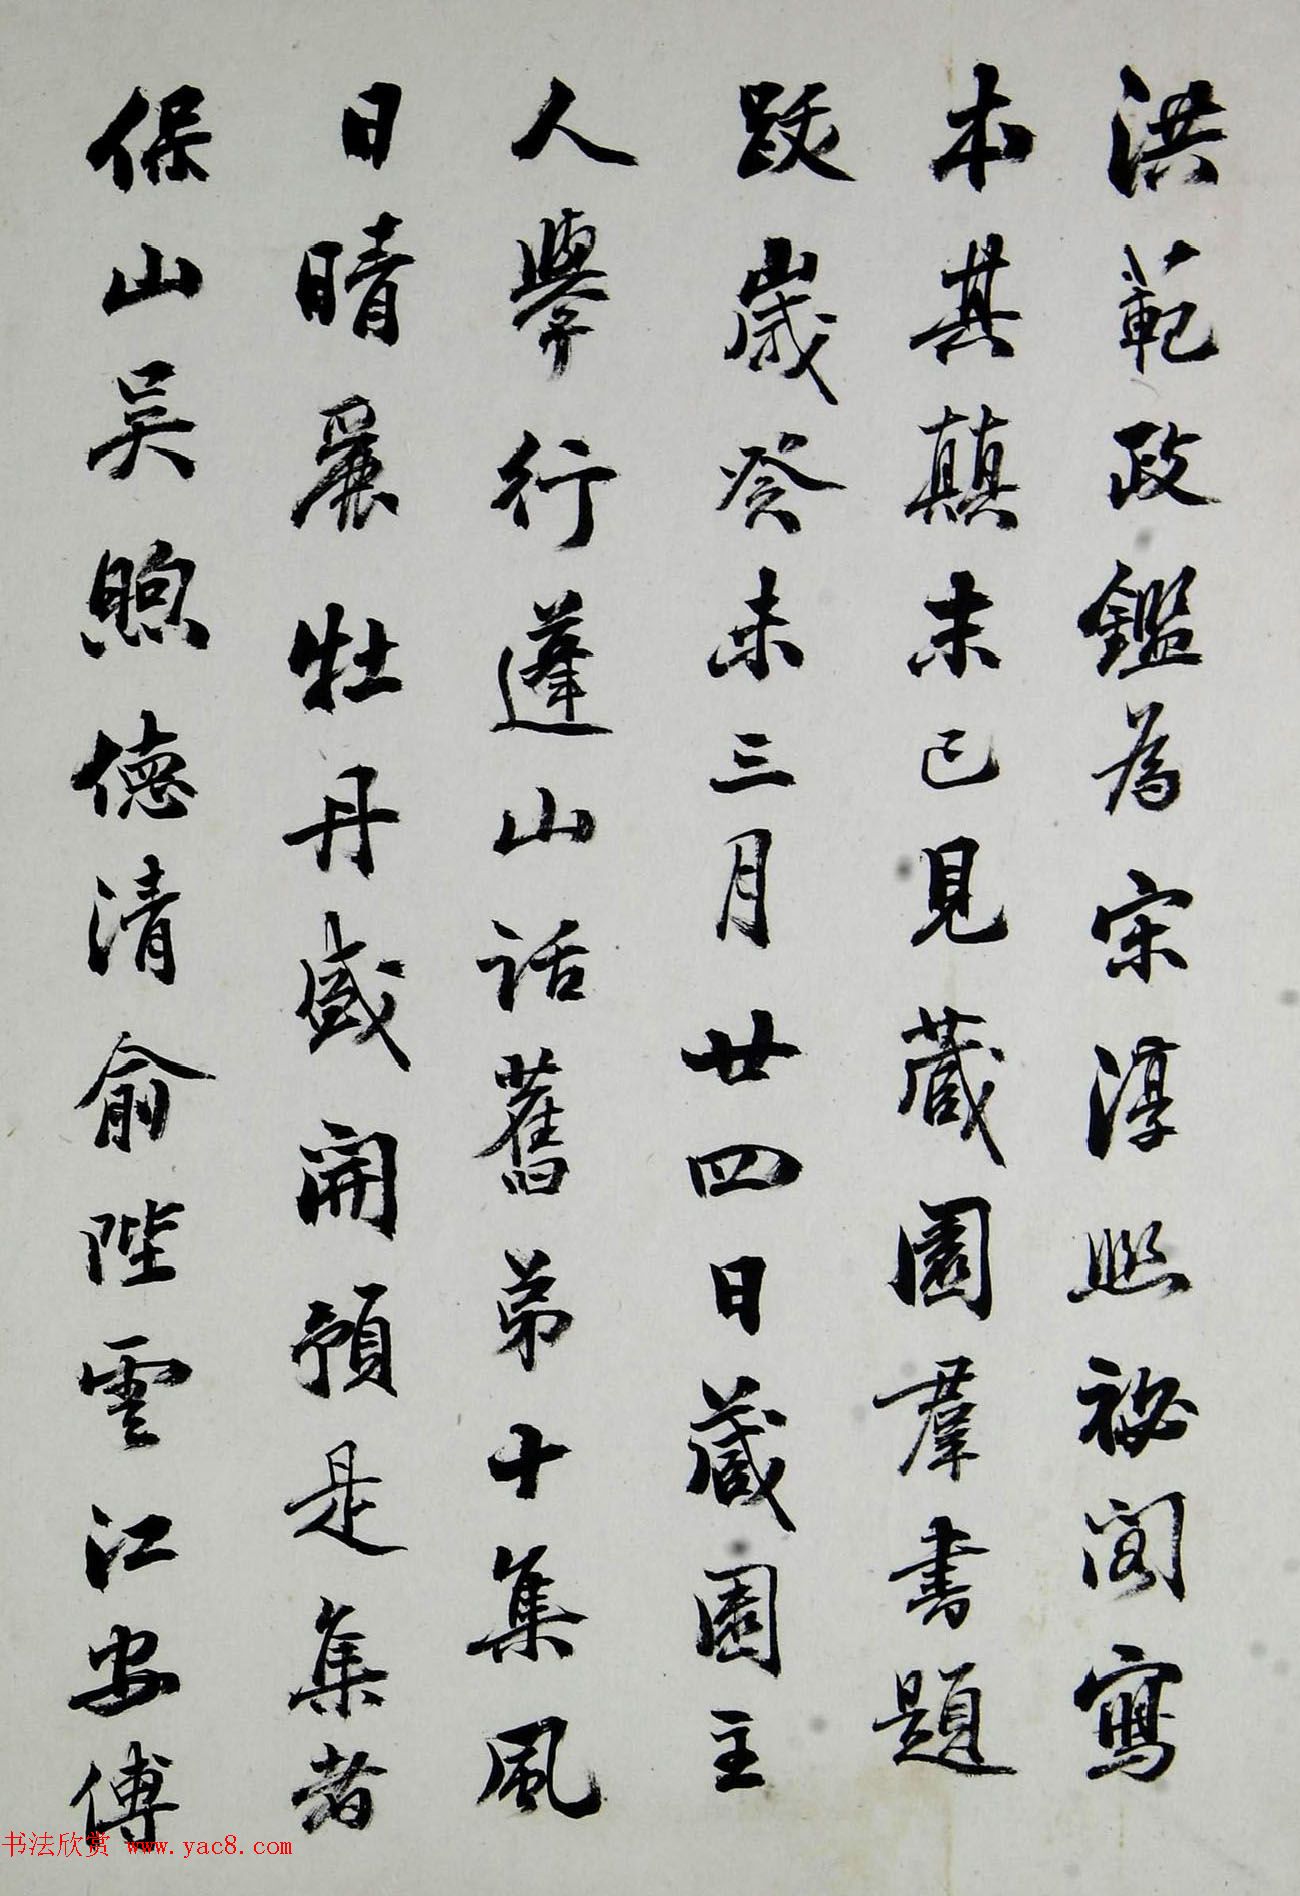 洪範政鑑為宋淳熙祕閣寫
本其顛末已見藏園羣書題
跋歲癸未三月廿四日藏園主
人舉行蓬山話舊弟十集風
日晴麗牡丹盛開預是集者
保山吳煦德清俞陛雲江安傅
书法欣赏 www.yac8.com